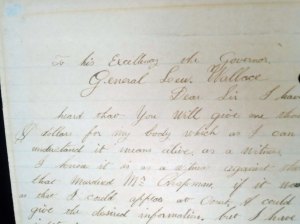 To his Excellency the Governor,
General Lew. Wallace
Dear Sir I have
heard that You will give one thou
$ dollars for my body which as I can
understand it means alive as a witness
I know it is as a witness against tho
that Murdered Mr Chapman. if it was
as that I could appear at Court, I could
give the desired information, but I have